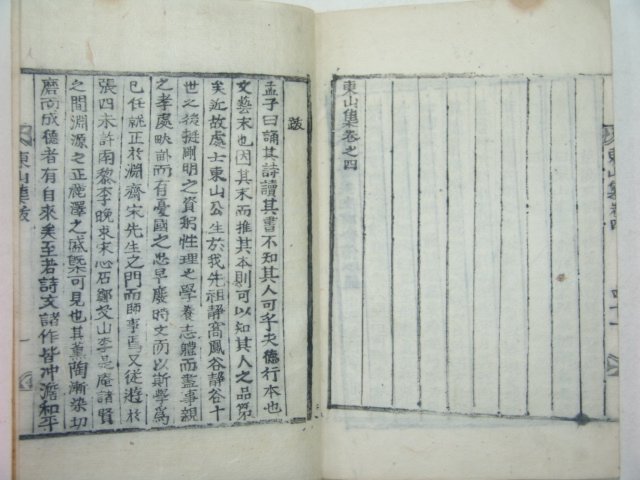 東山集卷之四
東山集 卷四
跋
孟子曰誦其詩讀其書不知其人可乎夫德行本也
文藝末也因其末而推其本則可以知其人之品第
矣近故處士東山公生於我先祖靜窩鳳谷靜谷十
世之後挺剛明之資躬性理之學養志體而盡事親
之孝處畎畝而有憂國之忠早廢時文而以斯學爲
己任就正於淵齋宋先生之門而師事焉又從遊於
張四未許南黎李晩東宋心石鄭艾山李是庵諸賢
之間淵源之正麗澤之感槩可見也其薰陶漸染切
磨而成德者有自來矣至若詩文諸作皆冲澹和平
東山集跋
一